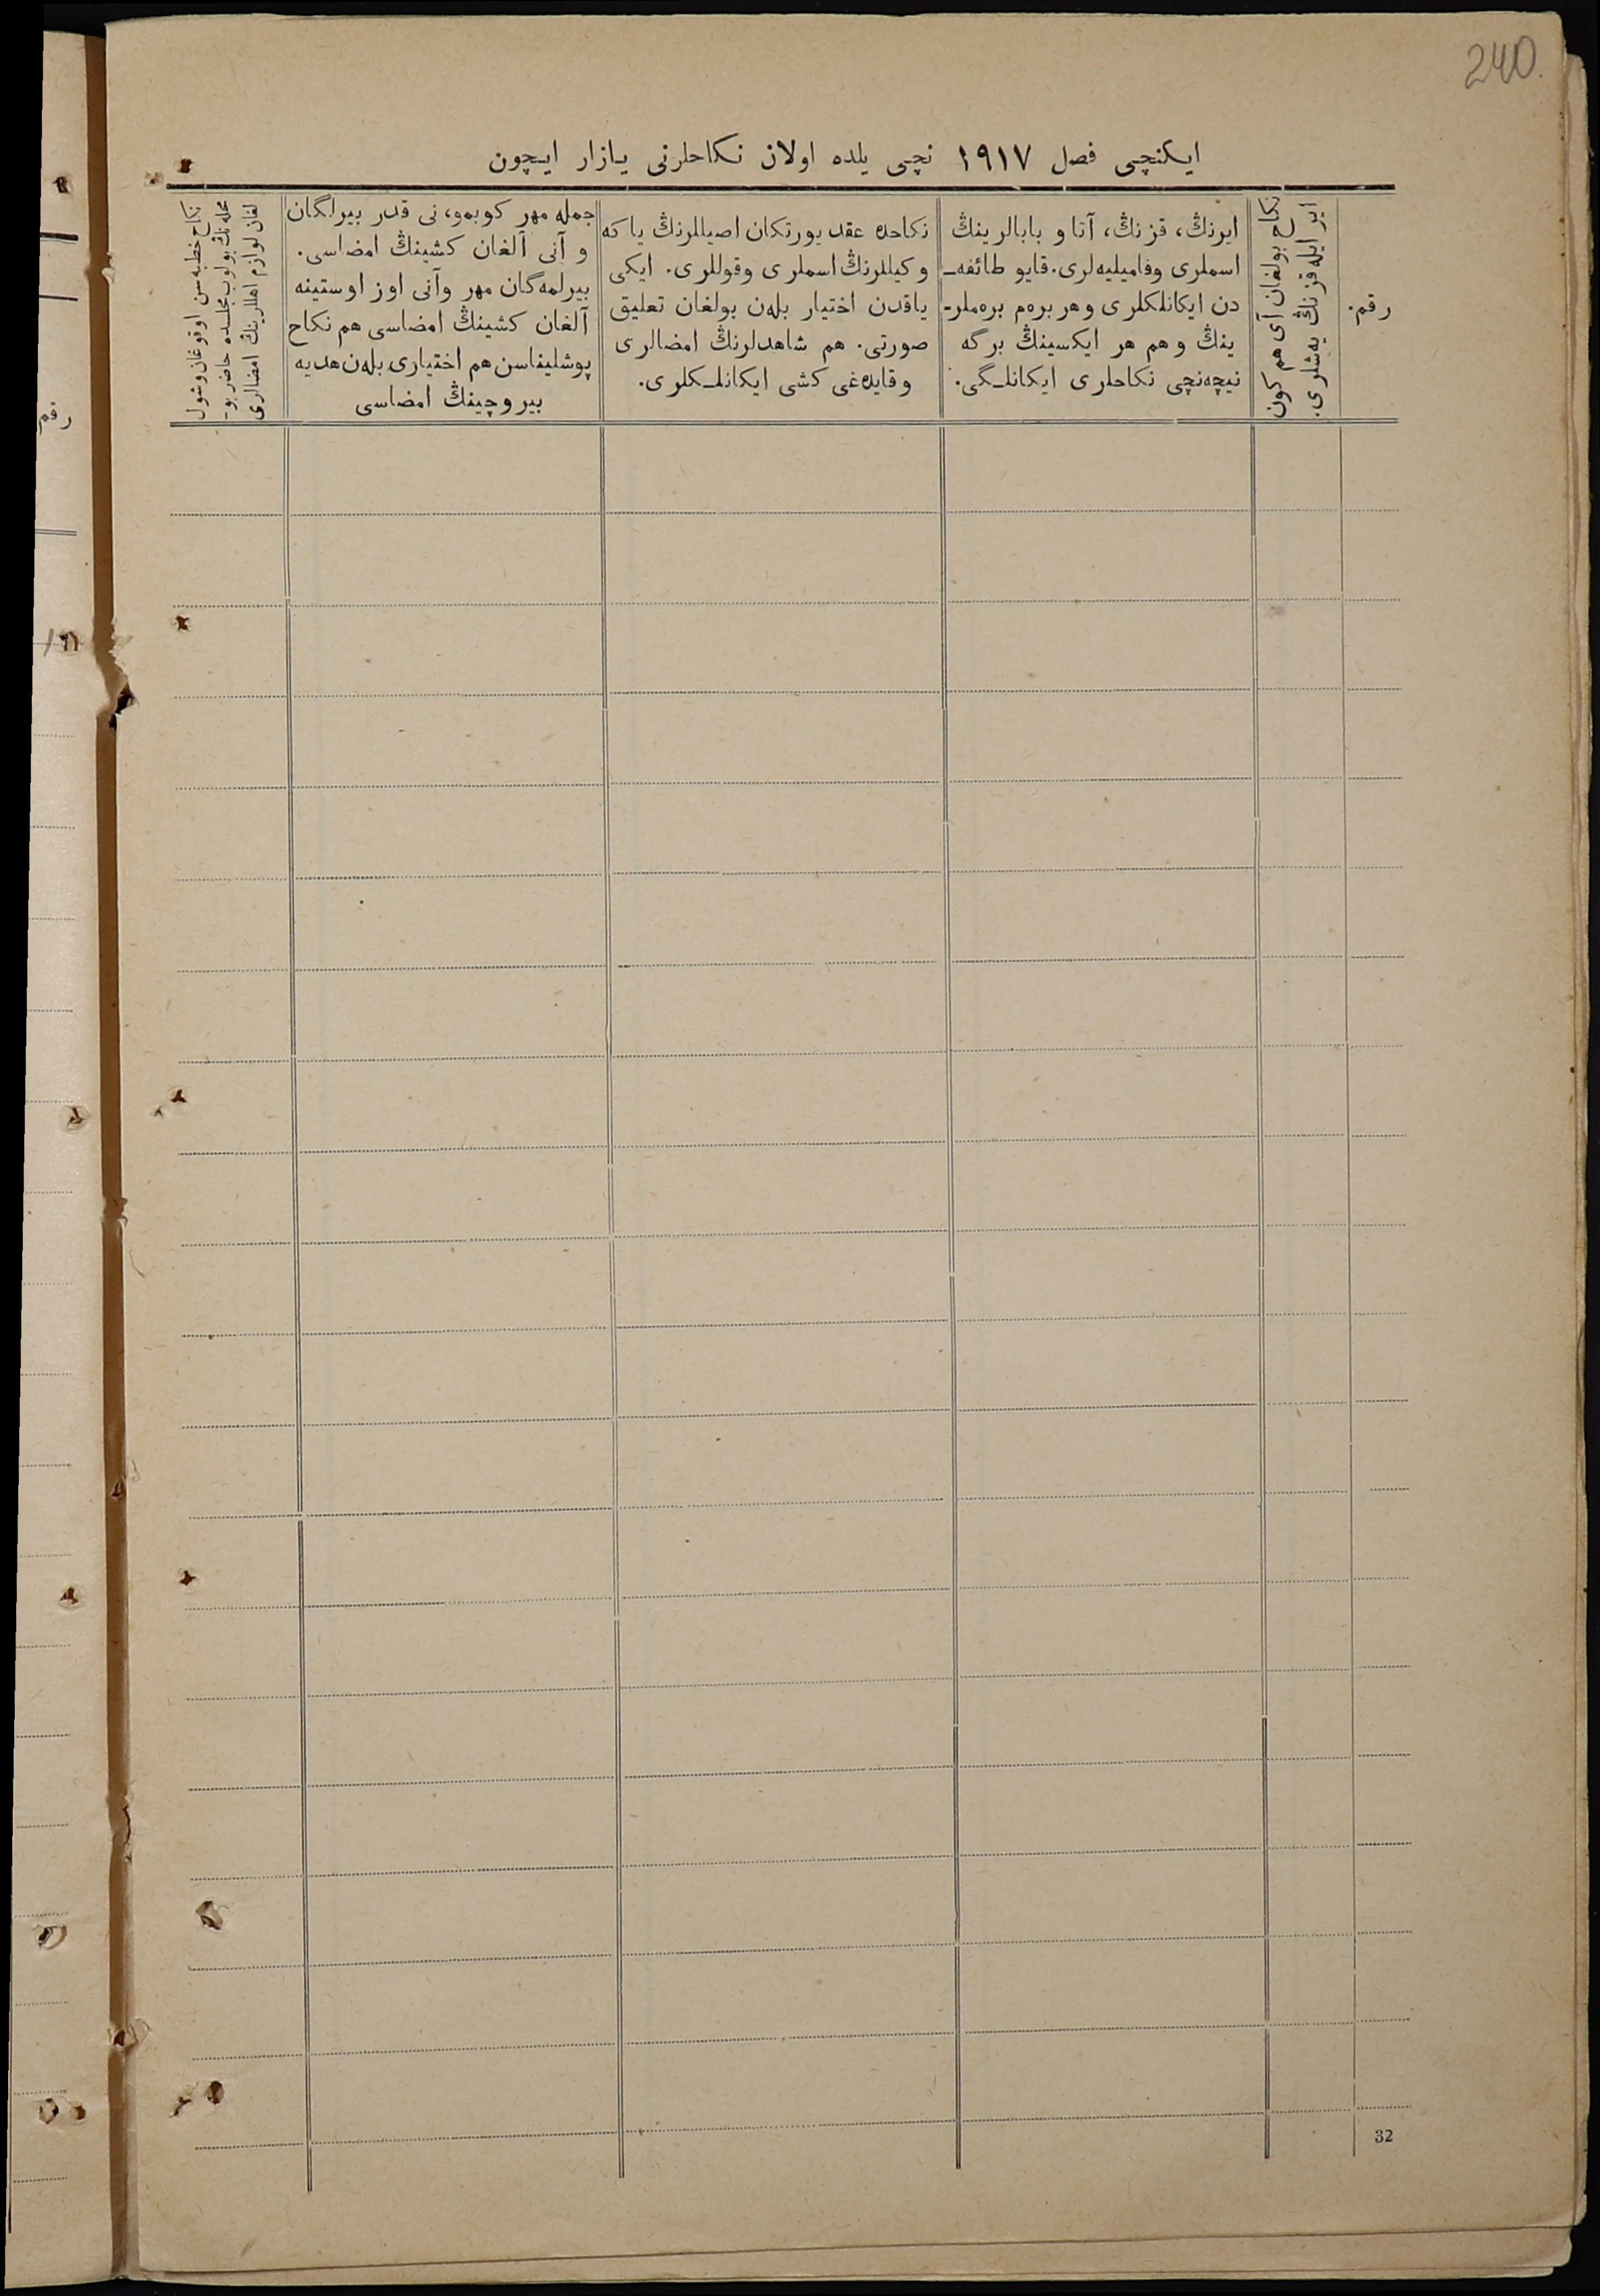 240.
ایکنچی فصل ١٩١٧ نچی یلده اولان نکاحلرنی یازار ایچون
رقم.
نکاح بولغان آی هم کون
ایر ایله قزنڭ یه‌شلری.
ایرنڭ، قزنڭ، آتا و بابالرینڭ
اسملری وفامیلیه‌لری. قایو طائفه‌ـ
دن ایکانلکلری وهر بره‌م بره‌ملر-
ینڭ وهم هر ایکسینڭ برگه
نیچه‌نچی نکاحلری ایکانلـگی.
نکاحده عقد یورتکان اصیللرنڭ یاکه
وکیللرنڭ اسملری وقوللری. ایکی
یاقدن اختیار بله‌ن بولغان تعلیق
صورتی. هم شاهدلرنڭ امضالری
وقایده‌غی کشی ایکانلـکلری.
جمله مهر کوبمو، نی قدر بیرلگان
و آنی آلغان کشینڭ امضاسی.
بیرلمه‌گان مهر وآنی اوز اوستینه
آلغان کشینڭ امضاسی هم نکاح
پوشلیناسن هم اختیاری بله‌ن هدیه
بیروچینڭ امضاسی
نکاح خطبه‌سن اوقوغان وشول
محله‌نڭ بولوب مجلسده حاضر بو-
لغان لوازم اهللرینڭ امضالری
رقم
32